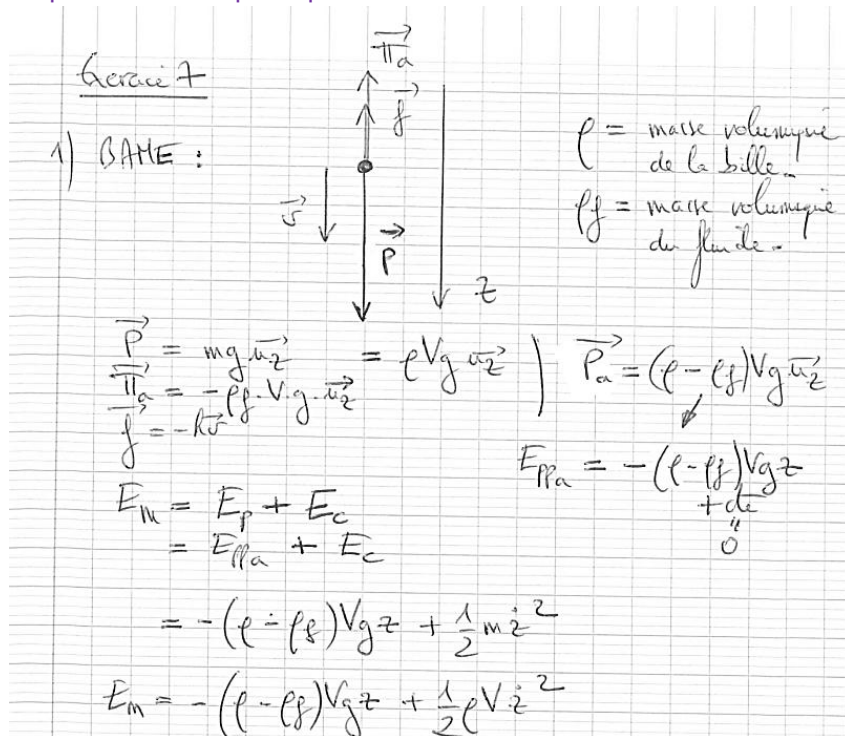 Exercice 7
1) BAME :
$\vec{\Pi_a}$
$\vec{f}$
$\vec{v}$
$\vec{P}$
z
ρ = masse volumique
de la bille.
ρf = masse volumique
du fluide.
$\vec{P}$ = mg $\vec{u_z}$ = ρVg $\vec{u_z}$
$\vec{\Pi_a}$ = -ρf.V.g.$\vec{u_z}$
$\vec{f}$ = -k$\vec{v}$
$\vec{P_a}$ = (ρ - ρf)Vg $\vec{u_z}$
Eppa = -(ρ-ρf)Vgz
+ cte
"
0
Em = Ep + Ec
= Eppa + Ec
= -(ρ - ρf)Vgz + 1/2 m ż²
Em = -(ρ - ρf)Vgz + 1/2 ρV ż²